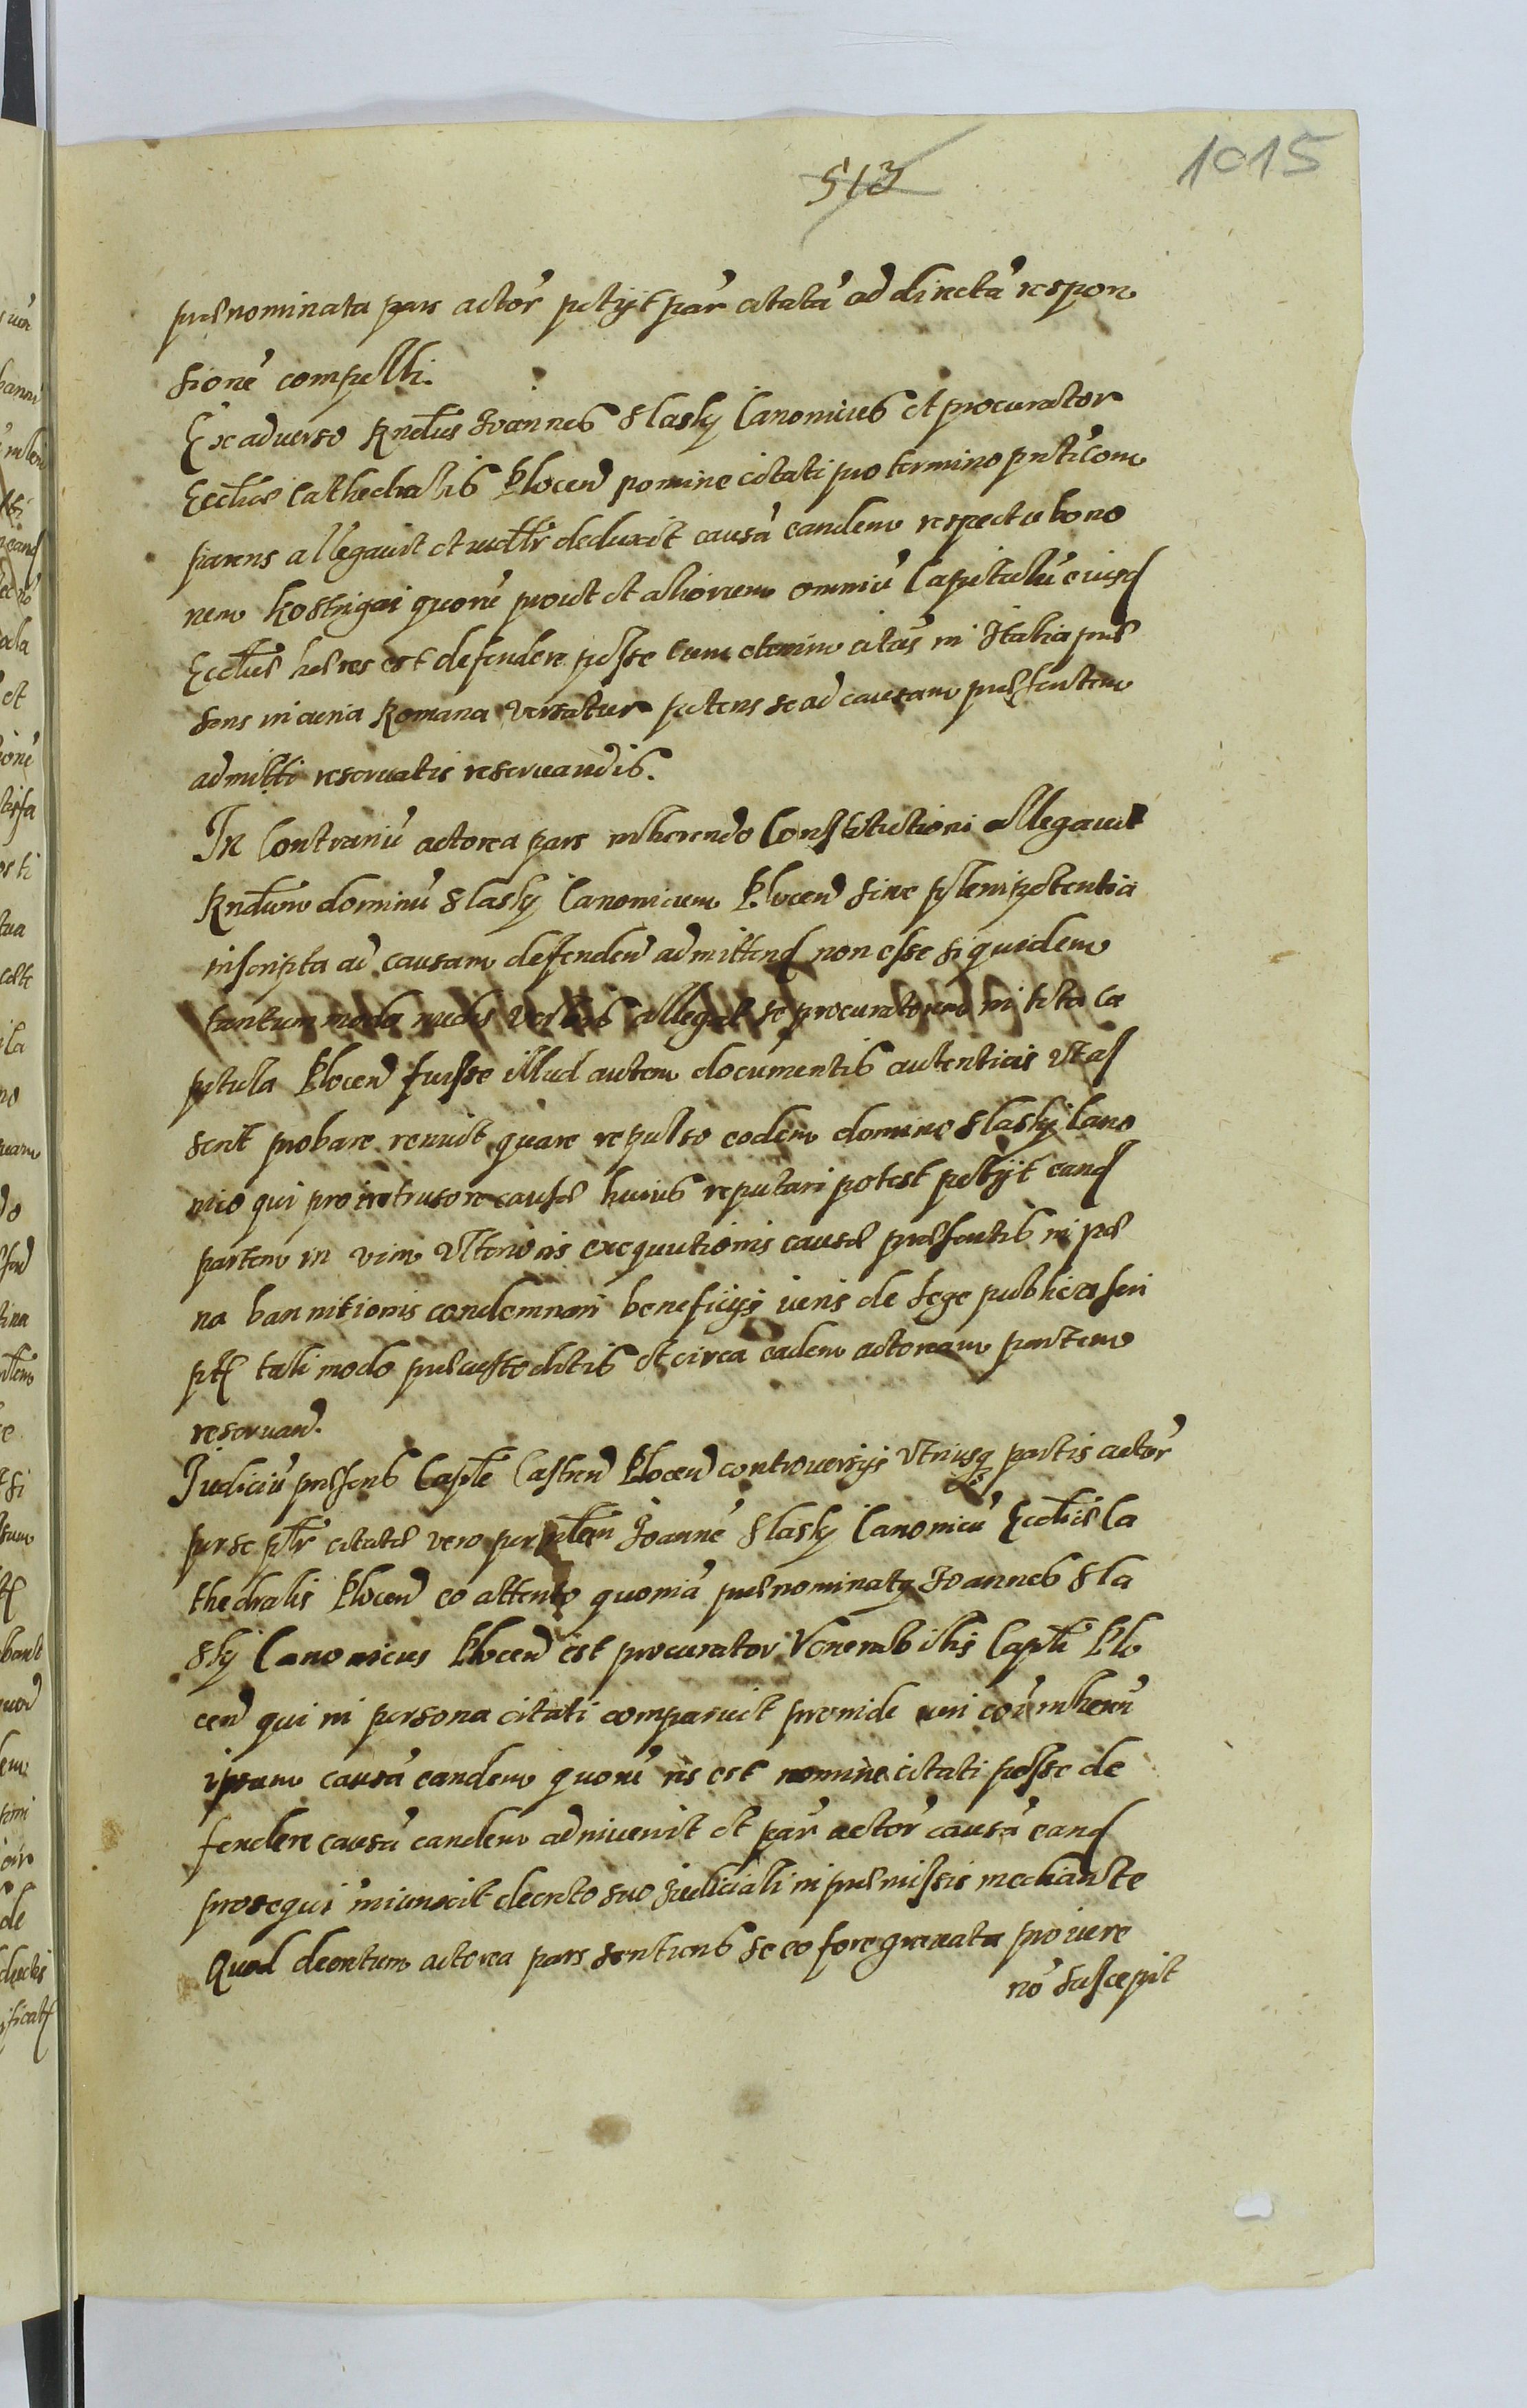 513
1015
prænominata pars actor̃ petijt par̃ citatã ad directã respon
sionẽ compelli.
Ex aduerso Rndus Joannes Slasky Canonicus et procurator
Eccliæ Cathedralis Plocen̄ nomine citati pro termino pñti com
parens allegauit et deduxit causã eandem respectu bono
rum Kostrigaj quorũ prout et aliorum omniũ Capitulũ eiusd
Eccliæ hæres est defendere posse cum etenim citãs in Italia præ
sens in curia Romana versatur petens se ad causam præsentem
admitti reseruatis reseruandis.
In Contrariũ actorea pars inhærendo Constitutioni allegauit
Rndum dominũ Slasky Canonicum Plocen̄ sine plenipotentia
inscripta ad causam defenden̄ admittend non esse siquidem
tantummodo nudis verbis allegat se procuratorem in tota Ca
pitula Plocen̄ fuisse illud autem documentis autenticis vt as
serit probare renuit quare repulso eodem domino Slasky Cano
nico qui pro intrusore causæ huius reputari potest petijt eand
partem in vim vlterioris exequutionis causæ præsentis in pæ
na bannitionis condemnari beneficijs iuris de lege publica scri
pt tali modo præcustoditis et circa eadem actoream partem
reseruan̄.
Judiciũ præsens Caple Castren̄ Plocen̄ controuersijs vtriusq partis actor̃
per se plr̃ citatæ vero per Joannẽ Slasky Canonicũ Eccliæ Ca
thedralis Plocen̄ eo attento quoniã prænominatq Joannes Sla
sky Canonicus Plocen̄ est procurator Venerabilis Capli Plo
cen̄ qui in persona citati comparuit proinde inhæren̄
ipsum causã eandem quorũ res est nomine citati posse de
fendere causã eandem adinuenit et par̃ actor̃ causã eand
prosequi iniunxit decreto suo Judiciali in præmissis mediante
Quod decretum actorea pars sentiens se eo fore grauatã pro iure
nõ suscepit